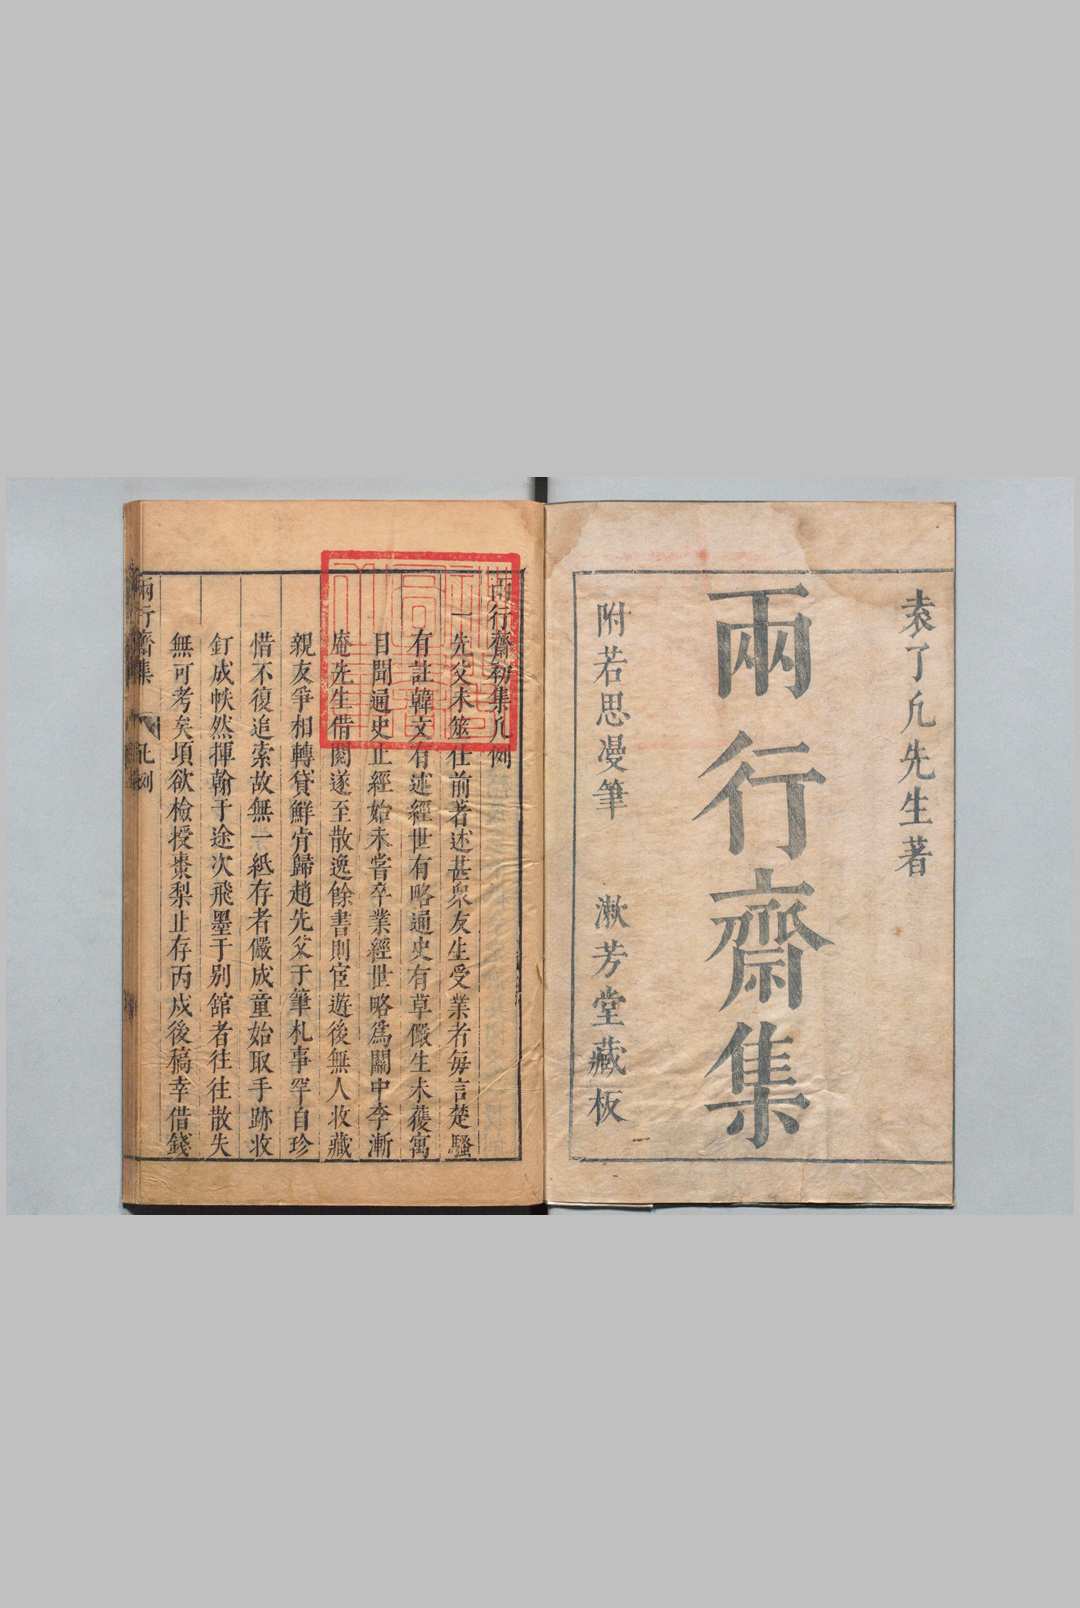 袁了凡先生著
兩行齋集
附若思漫筆 漱芳堂藏板
兩行齋初集凡例
一先父未筮仕前著述甚衆友生受業者每言楚騷
有註韓文有述經世有略通史有草儼生未穫寓
目聞通史止經始未嘗卒業經世略爲關中李漸
庵先生借閱遂至散逸餘書則宦遊後無人收藏
親友爭相轉貸鮮肯歸趙先父于筆札事罕自珍
惜不復追索故無一紙存者儼成童始取手跡收
釘成帙然揮翰于途次飛墨于別舘者往往散失
無可考矣頃欲檢授棗梨止存丙戍後稿幸借錢
兩行齋集 凡例